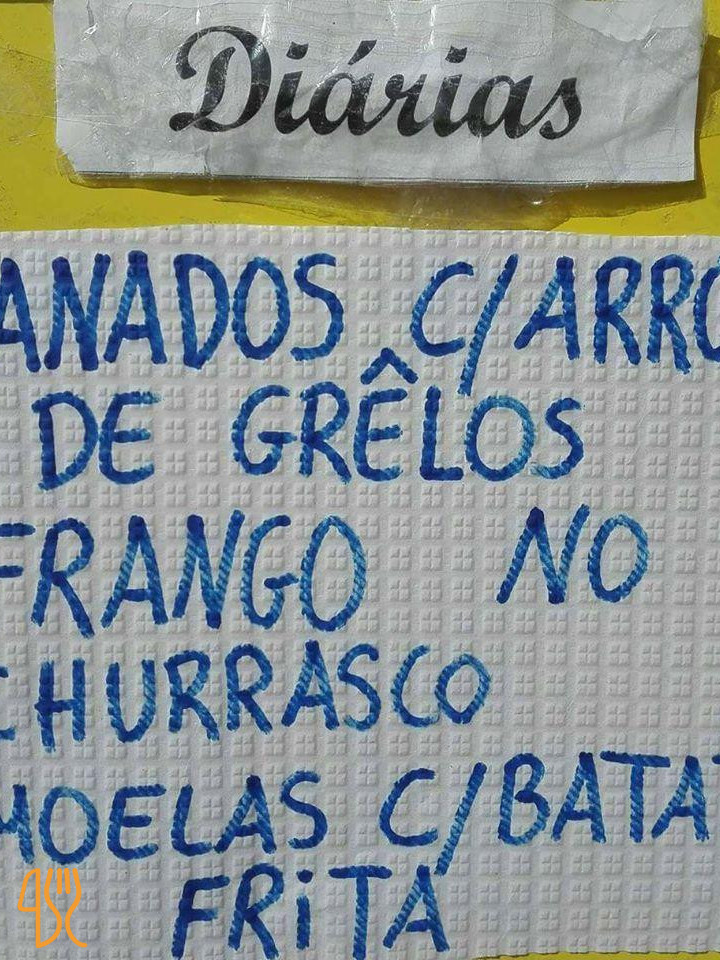 Diárias
ANADOS C/ARRO
DE GRÊLOS
FRANGO NO
CHURRASCO
MOELAS C/BATAT
FRiTA